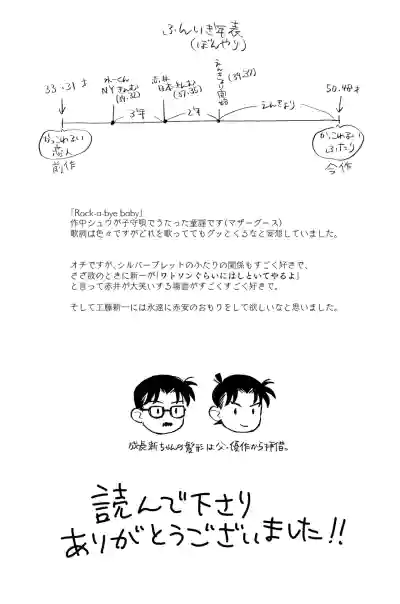 ふんいき年表
(ぼんやり)
33.31才
れーくん
NYきんむ
(34.32)
3年
赤井
日本きんむ
(37.35)
2年
(39.37)
えんきょり
50.48才
かっこわるい
恋人
前作
かっこわるい
ふたり
今作
「Rock-a-bye baby」
作中シュウが子守唄でうたった童謡です(マザーグース)
歌詞は色々ですがどれを歌っててもグッとくるなと妄想していました。
オチですが、シルバーブレットのふたりの関係もすごく好きで、
さざ波のときに新一が「ワトソンぐらいにはしといてやるよ」
と言って赤井が大笑いする場面がすごくすごく好きで。
そして工藤新一には永遠に赤安のおもりをして欲しいなと思いました。
成長新ちゃんの髪形は父・優作から拝借。
読んで下さり
ありがとうございました!!